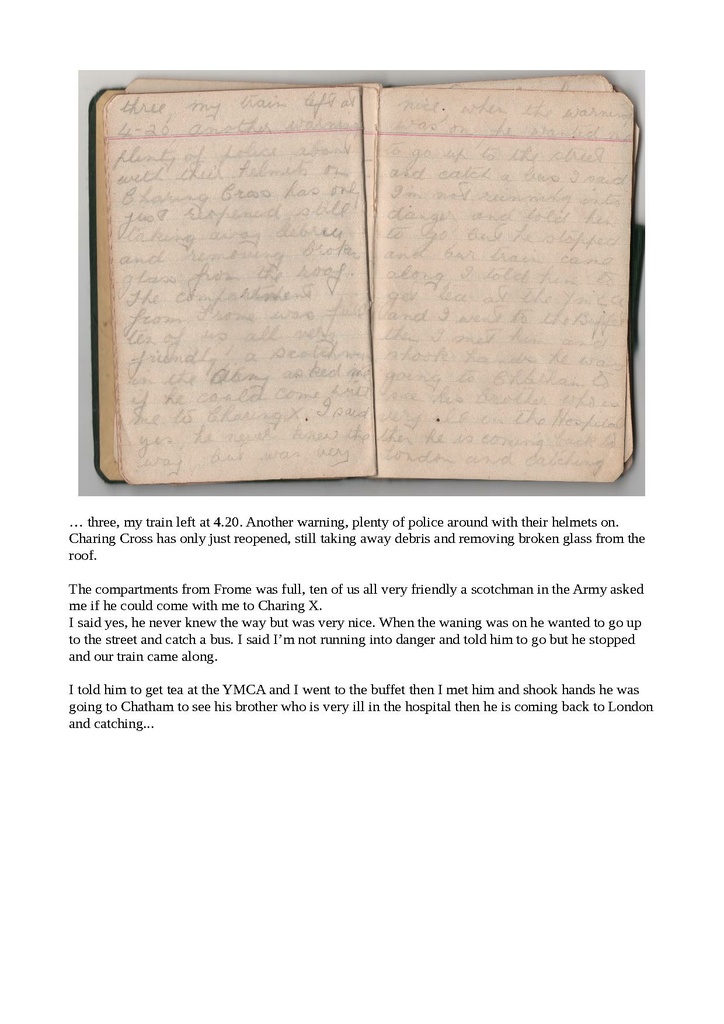 three, my train left at
4-20 another warning
plenty of police about
with their helmets on
Charing Cross has only
just reopened still
taking away debrey
and removing broken
glass from the roof.
The compartment
from Frome was full
ten of us all very
friendly, a scotchman
in the Army asked me
if he could come with
me to Charing X. I said
yes, he never knew the
way but was very
nice. when the warning
was on he wanted
to go up to the street
and catch a bus I said
I'm not running into
danger and told him
to go but he stopped
and our train came
along I told him to
get tea at the YMCA
and I went to the Buffet
then I met him and
shook he was
going to Chatham to
see his brother who is
very ill in the Hospital
then he is coming back to
London and catching
… three, my train left at 4.20. Another warning, plenty of police around with their helmets on.
Charing Cross has only just reopened, still taking away debris and removing broken glass from the
roof.
The compartments from Frome was full, ten of us all very friendly a scotchman in the Army asked
me if he could come with me to Charing X.
I said yes, he never knew the way but was very nice. When the waning was on he wanted to go up
to the street and catch a bus. I said I’m not running into danger and told him to go but he stopped
and our train came along.
I told him to get tea at the YMCA and I went to the buffet then I met him and shook hands he was
going to Chatham to see his brother who is very ill in the hospital then he is coming back to London
and catching...